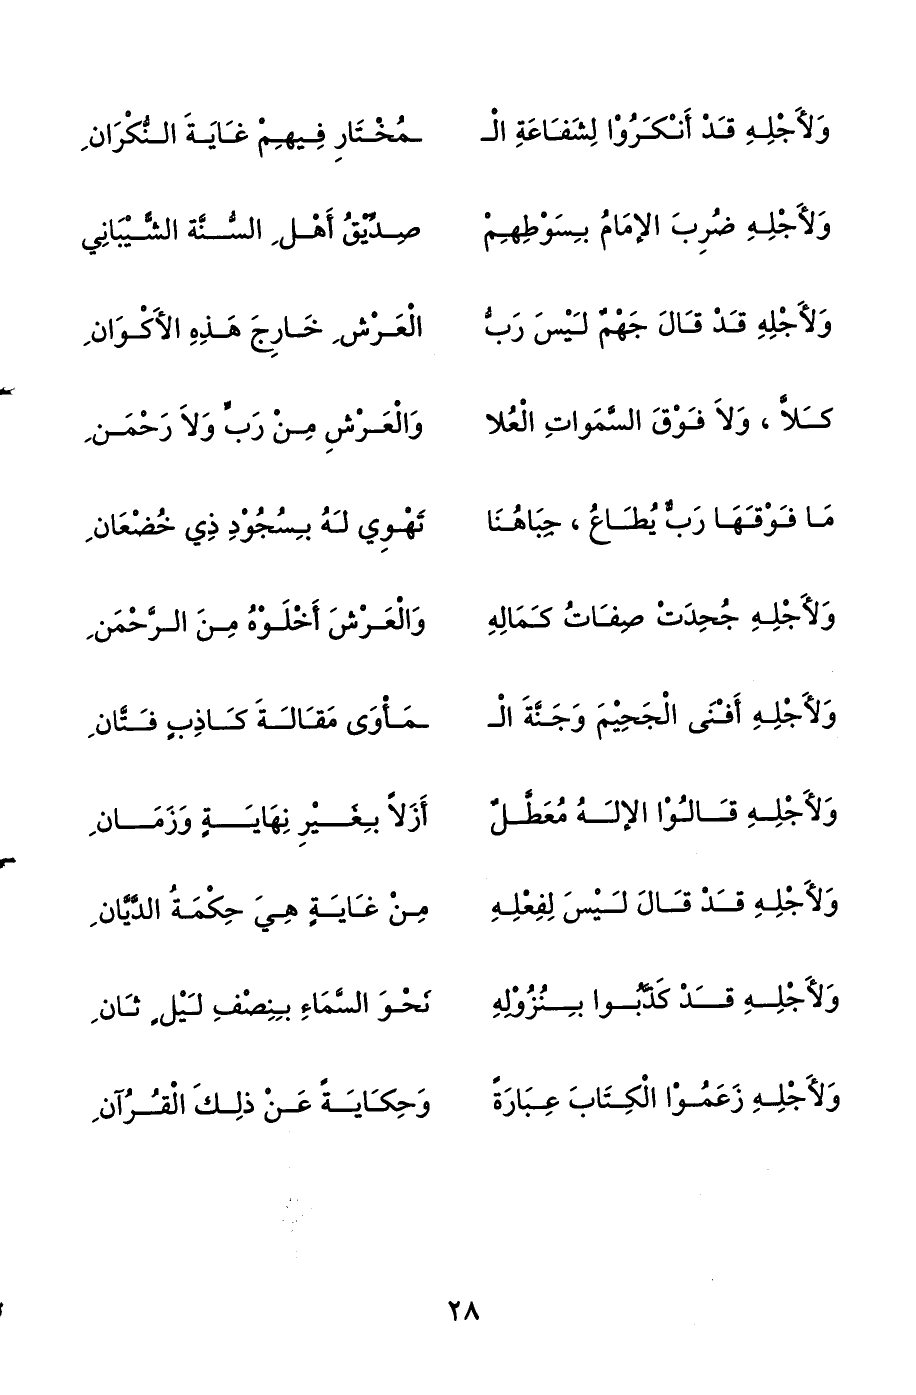 وَلأَجْلِهِ قَدْ أَنْكَرُوْا لِشَفَاعَةِ الْـ ـمُخْتَارِ فِيهِمْ غَايَةَ النُّكْرَانِ
وَلأَجْلِهِ ضُرِبَ الإمَامُ بِسَوْطِهِمْ صِدِّيْقُ أَهْلِ السُّنَّة الشَّيْبَانِي
وَلأَجْلِهِ قَدْ قَالَ جَهْمٌ لَيْسَ رَبُّ الْعَرْشِ خَارِجَ هَذِهِ الأَكْوَانِ
كَلاَّ ، وَلاَ فَوْقَ السَّمَواتِ الْعُلا وَالْعَرْشِ مِنْ رَبٍّ وَلاَ رَحْمَنِ
مَا فَوْقَهَا رَبٌّ يُطَاعُ ، جِبَاهُنَا تَهْوِي لَهُ بِسُجُوْدِ ذِي خُضْعَانِ
وَلأَجْلِهِ جُحِدَتْ صِفَاتُ كَمَالِهِ وَالْعَرْشَ أَخْلَوْهُ مِنَ الرَّحْمَنِ
وَلأَجْلِهِ أَفْنَى الْجَحِيْمَ وَجَنَّةَ الْـ ـمَأْوَى مَقَالَةَ كَاذِبٍ فَتَّانِ
وَلأَجْلِهِ قَالُوْا الإلَهُ مُعَطَّلٌ أَزَلاً بِغَيْرِ نِهَايَةٍ وَزَمَانِ
وَلأَجْلِهِ قَدْ قَالَ لَيْسَ لِفِعْلِهِ مِنْ غَايَةٍ هِيَ حِكْمَةُ الدَّيَّانِ
وَلأَجْلِهِ قَدْ كَذَّبُوا بِنُزُوْلِهِ نَحْوَ السَّمَاءِ بِنِصْفِ لَيْلٍ ثَانِ
وَلأَجْلِهِ زَعَمُوْا الْكِتَابَ عِبَارَةً وَحِكَايَةً عَنْ ذلِكَ الْقُرْآنِ
٢٨